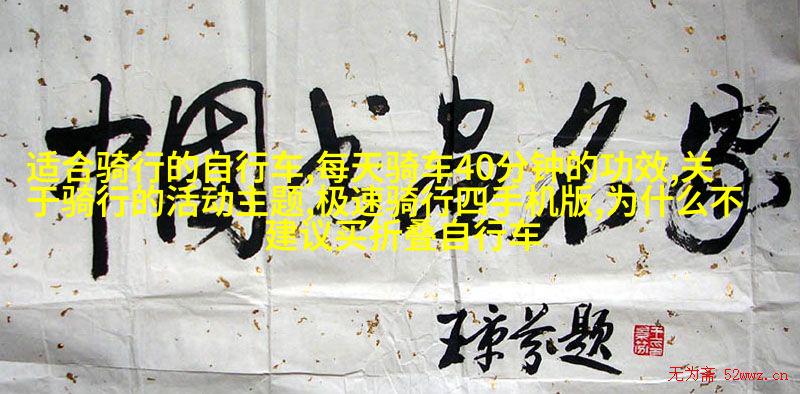 中国书画名家
适合骑行的自行车,每天骑车40分钟的功效,关
于骑行的活动主题,极速骑行四手机版,为什么不
建议买折叠自行车
王京芬题
无为斋 52wwz.cn